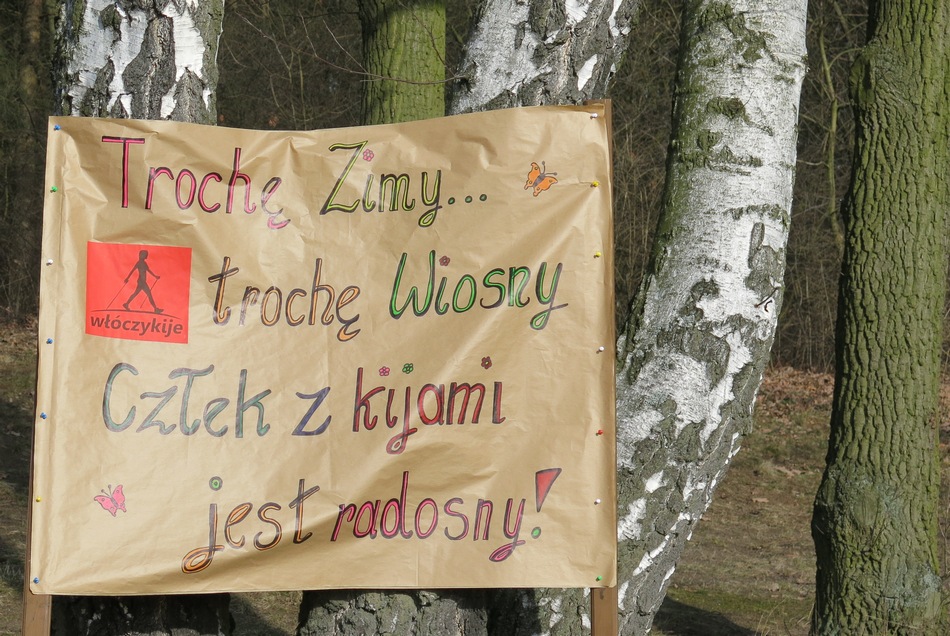 Trochę Zimy...
włóczykije
trochę Wiosny
Człek z kijami
jest radosny!